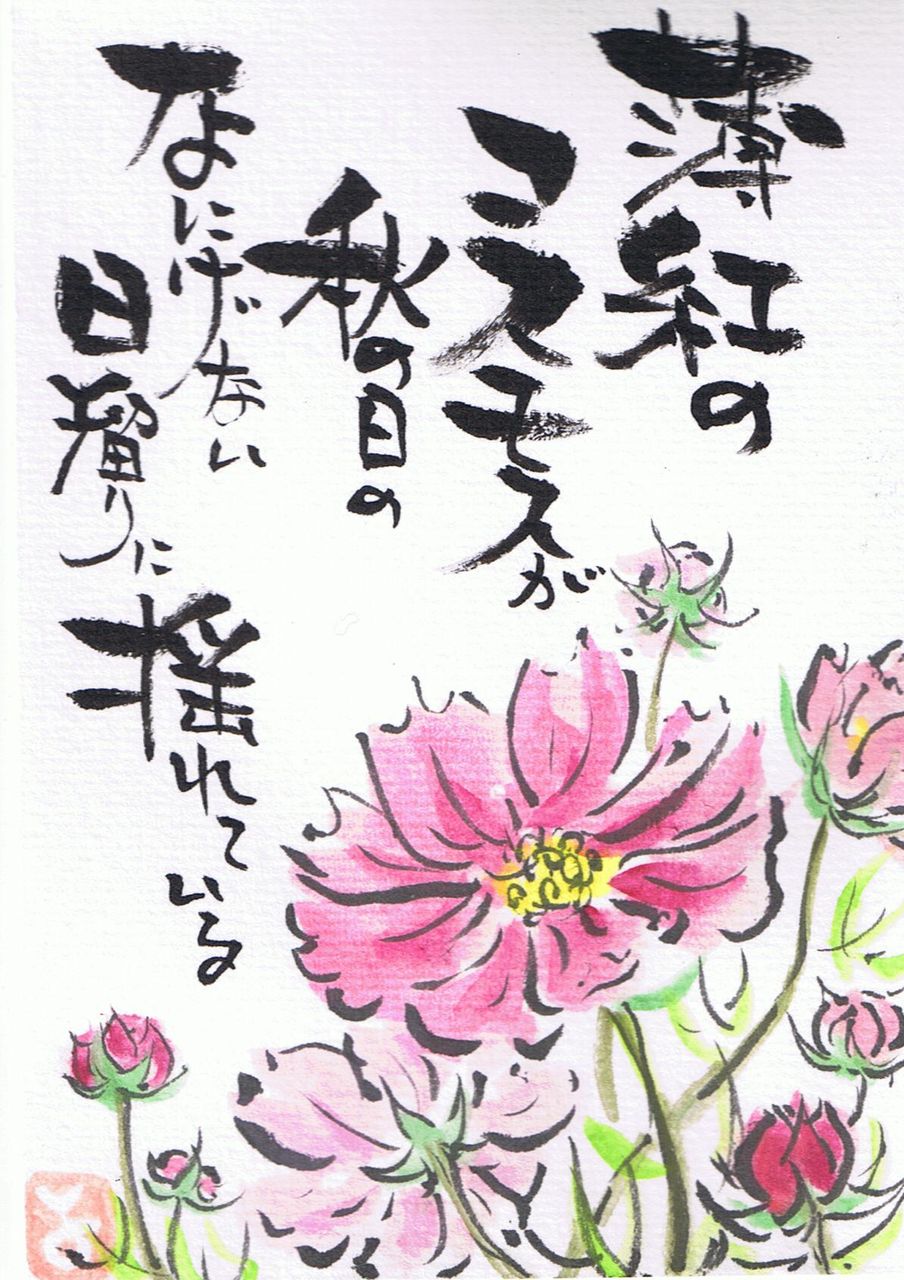 薄紅の
コスモスが
秋の日の
なにげない
日溜りに
揺れている